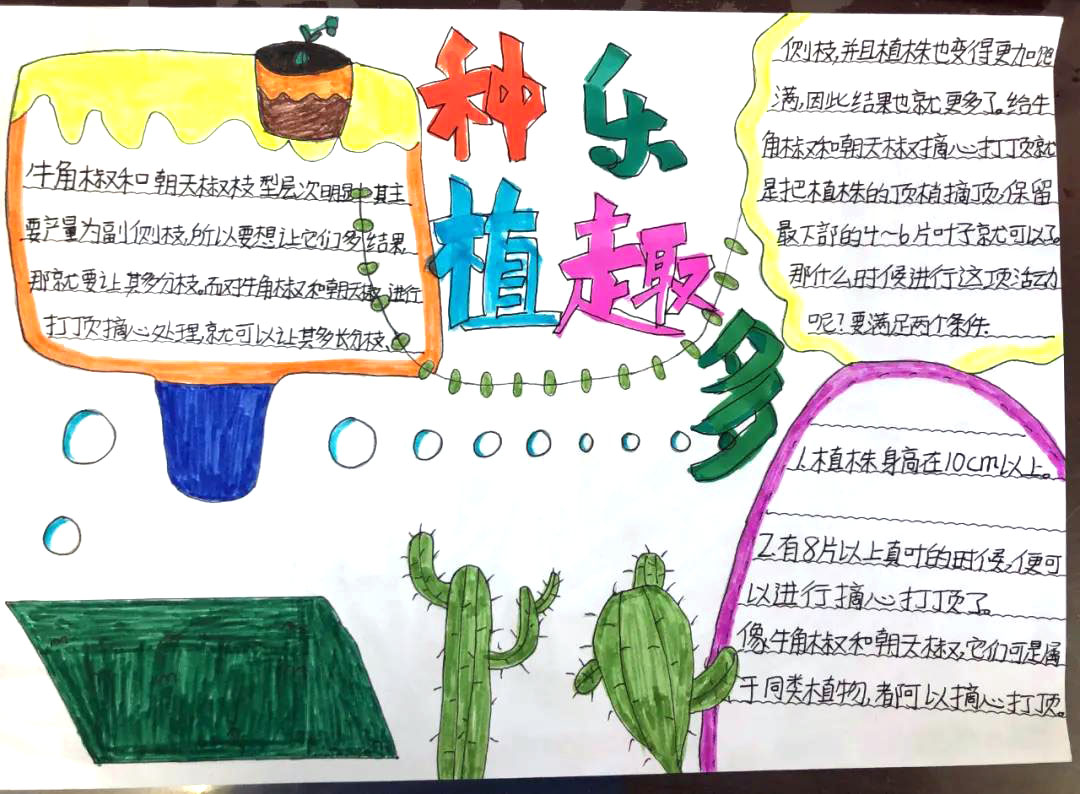 种植
乐趣多
牛角椒和朝天椒枝型层次明显,其主
要产量为副侧枝,所以要想让它们多结果,
那就要让其多分枝。而对牛角椒和朝天椒进行
打顶摘心处理,就可以让其多长分枝、
侧枝,并且植株也变得更加饱
满,因此结果也就更多了。给牛
角椒和朝天椒摘心打顶就
是把植株的顶梢摘顶,保留
最下部的4~6片叶子就可以了。
那什么时候进行这项活动
呢?要满足两个条件:
1.植株身高在10cm以上。
2.有8片以上真叶的时候,便可
以进行摘心打顶了。
像牛角椒和朝天椒,它们可是属
于同类植物,都可以摘心打顶。